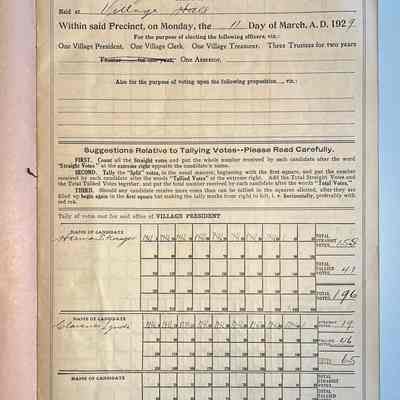 Held at Village Hall
Within said Precinct, on Monday, the 11 Day of March, A. D. 1929
For the purpose of electing the following officers, viz:
One Village President, One Village Clerk, One Village Treasurer, Three Trustees for two years
Trustee for one year, One Assessor.
Also for the purpose of voting upon the following proposition viz:
Suggestions Relative to Tallying Votes--Please Read Carefully.
FIRST. Count all the Straight votes and put the whole number received by each candidate after the word
"Straight Votes" at the extreme right opposite the candidate's name.
SECOND. Tally the "Split" votes, in the usual manner, beginning with the first square, and put the number
received by each candidate after the words "Tallied Votes" at the extreme right. Add the Total Straight Votes
and Total Tallied Votes together, and put the total number received by each candidate after the words "Total Votes,"
THIRD. Should any candidate receive more votes than can be tallied in the squares allotted, after they are
filled up begin again in the first square but making the tally marks from right to left, i. e. Horizontally, preferably with
red ink.
Tally of votes cast for said office of VILLAGE PRESIDENT
NAME OF CANDIDATE
TOTAL STRAIGHT VOTES, 155
TOTAL TALLIED VOTES 41
TOTAL VOTES, 196
NAME OF CANDIDATE
Clarence
STRAIGHT VOTES 19
46
65
NAME OF CANDIDATE
TOTAL STRAIGHT VOTES,
TOTAL TALLIED VOTES